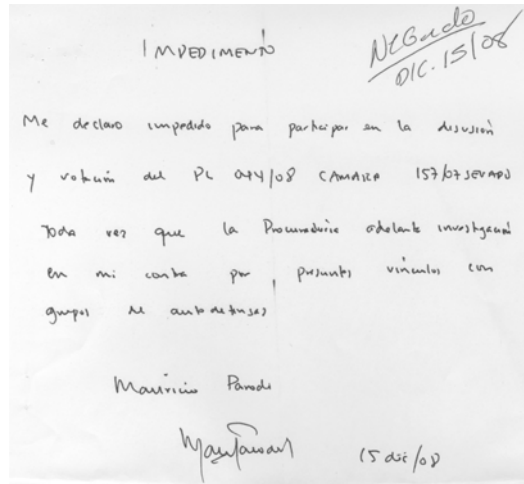 IMPEDIMENTO
Negado
DIC. 15/08
Me declaro impedido para participar en la discusión
y votación del PL 044/08 CAMARA 157/07 SENADO
Toda vez que la Procuraduria adelanta investigación
en mi contra por presuntos vinculos con
grupos de autodefensas
Mauricio Parodi
15 dic/08